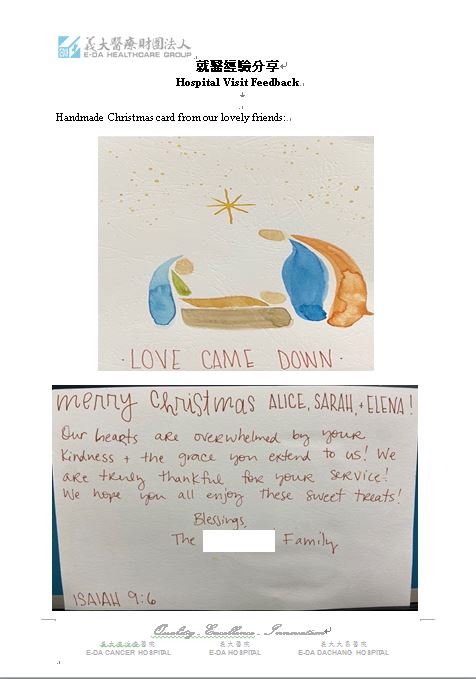 義大醫療財團法人
E-DA HEALTHCARE GROUP
就醫經驗分享
Hospital Visit Feedback
Handmade Christmas card from our lovely friends:
· LOVE CAME DOWN ·
merry christmas ALICE, SARAH, + ELENA!
Our hearts are overwhelmed by your
kindness + the grace you extend to us! We
are truly thankful for your service!
We hope you all enjoy these sweet treats!
Blessings,
The Family
ISAIAH 9:6
Quality - Excellence - Innovation
義大癌治療醫院 義大醫院 義大大昌醫院
E-DA CANCER HOSPITAL E-DA HOSPITAL E-DA DACHANG HOSPITAL